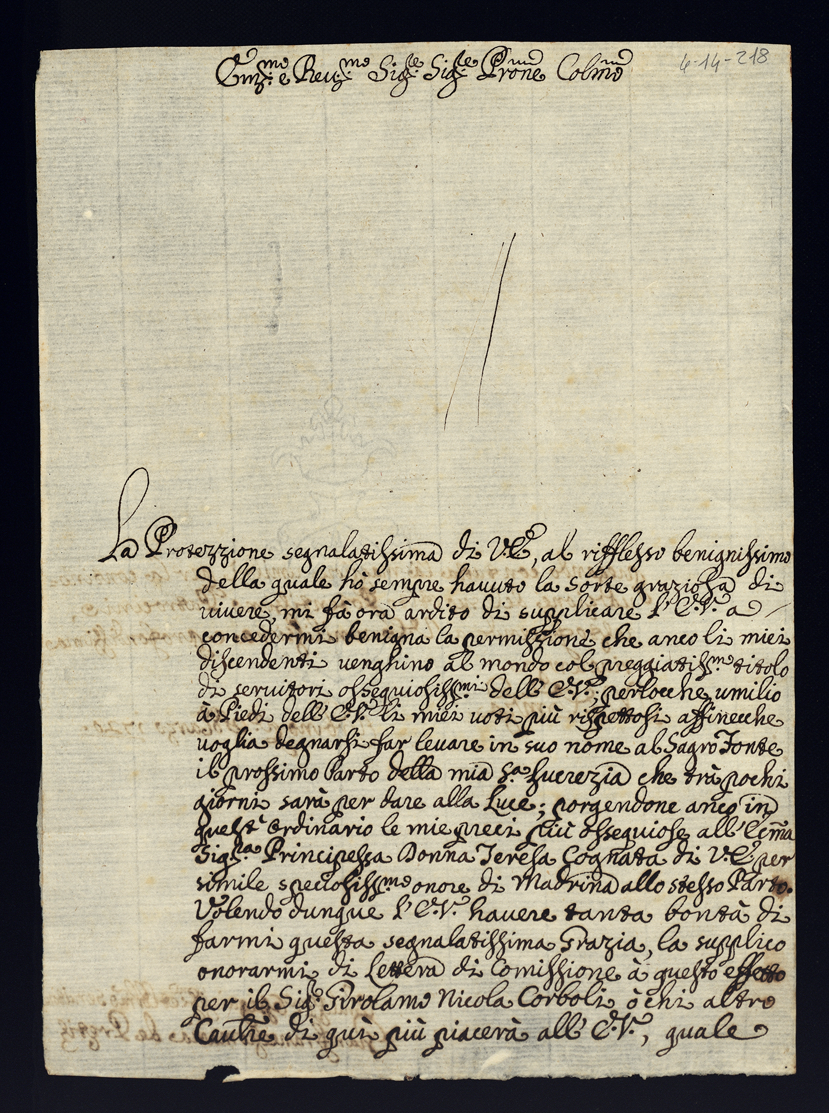 Em.mo e Rev.mo Sig.re Sig.re Prone Colmo
4-14-218
La Protezzione segnalatissima di V.E., al rifflesso benignissimo
della quale hò sempre havuto la sorte graziosa di
vivere, mi fà ora ardito di supplicare l'E.V. a
concedermi benigna la permissione che anco li miei
discendenti venghino al mondo col preggiatiss.mo titolo
di servitori ossequiosiss.mi dell'E.V.; perloche umilio
à Piedi dell'E.V. li miei voti più rispettosi affineche
voglia degnarsi far levare in suo nome al Sagro Fonte
il prossimo Parto della mia S.ra Lucrezia che trà pochi
giorni sarà per dare alla Luce; porgendone anco in
quest'ordinario le mie preci più ossequiose all'Ecc.ma
Sig.ra Principessa Donna Teresa Cognata di V.E. per
simile speciosiss.mo onore di Madrina allo stesso Parto.
Volendo dunque l'E.V. havere tanta bontà di
farmi questa segnalatissima Grazia, la supplico
onorarmi di Lettera di Comissione à questo effetto
per il Sig.re Girolamo Nicola Corboli ò chi altro
Caulre di quà più piacerà all'E.V., quale